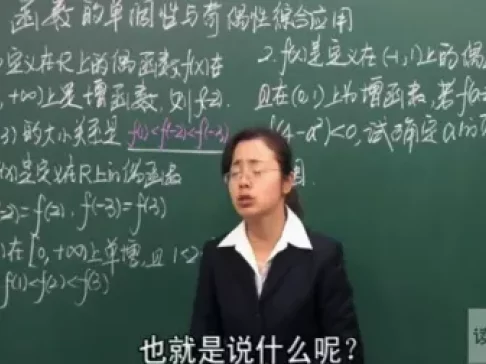 函数的单调性与奇偶性综合应用
定义在R上的偶函数f(x)在
+∞)上是增函数,则f(-2).
3)的大小关系是 f(1)<f(-2)<f(-3)
f(x)是定义在R上的偶函数
-2)=f(2), f(-3)=f(3)
在[0,+∞)上单增,且1<2
f(1)<f(2)<f(3)
2.f(x)是定义在(-1,1)上的偶
且在(0,1)上为增函数,若f(a-
f(4-a²)<0,试确定a的
围.
也就是说什么呢?
读